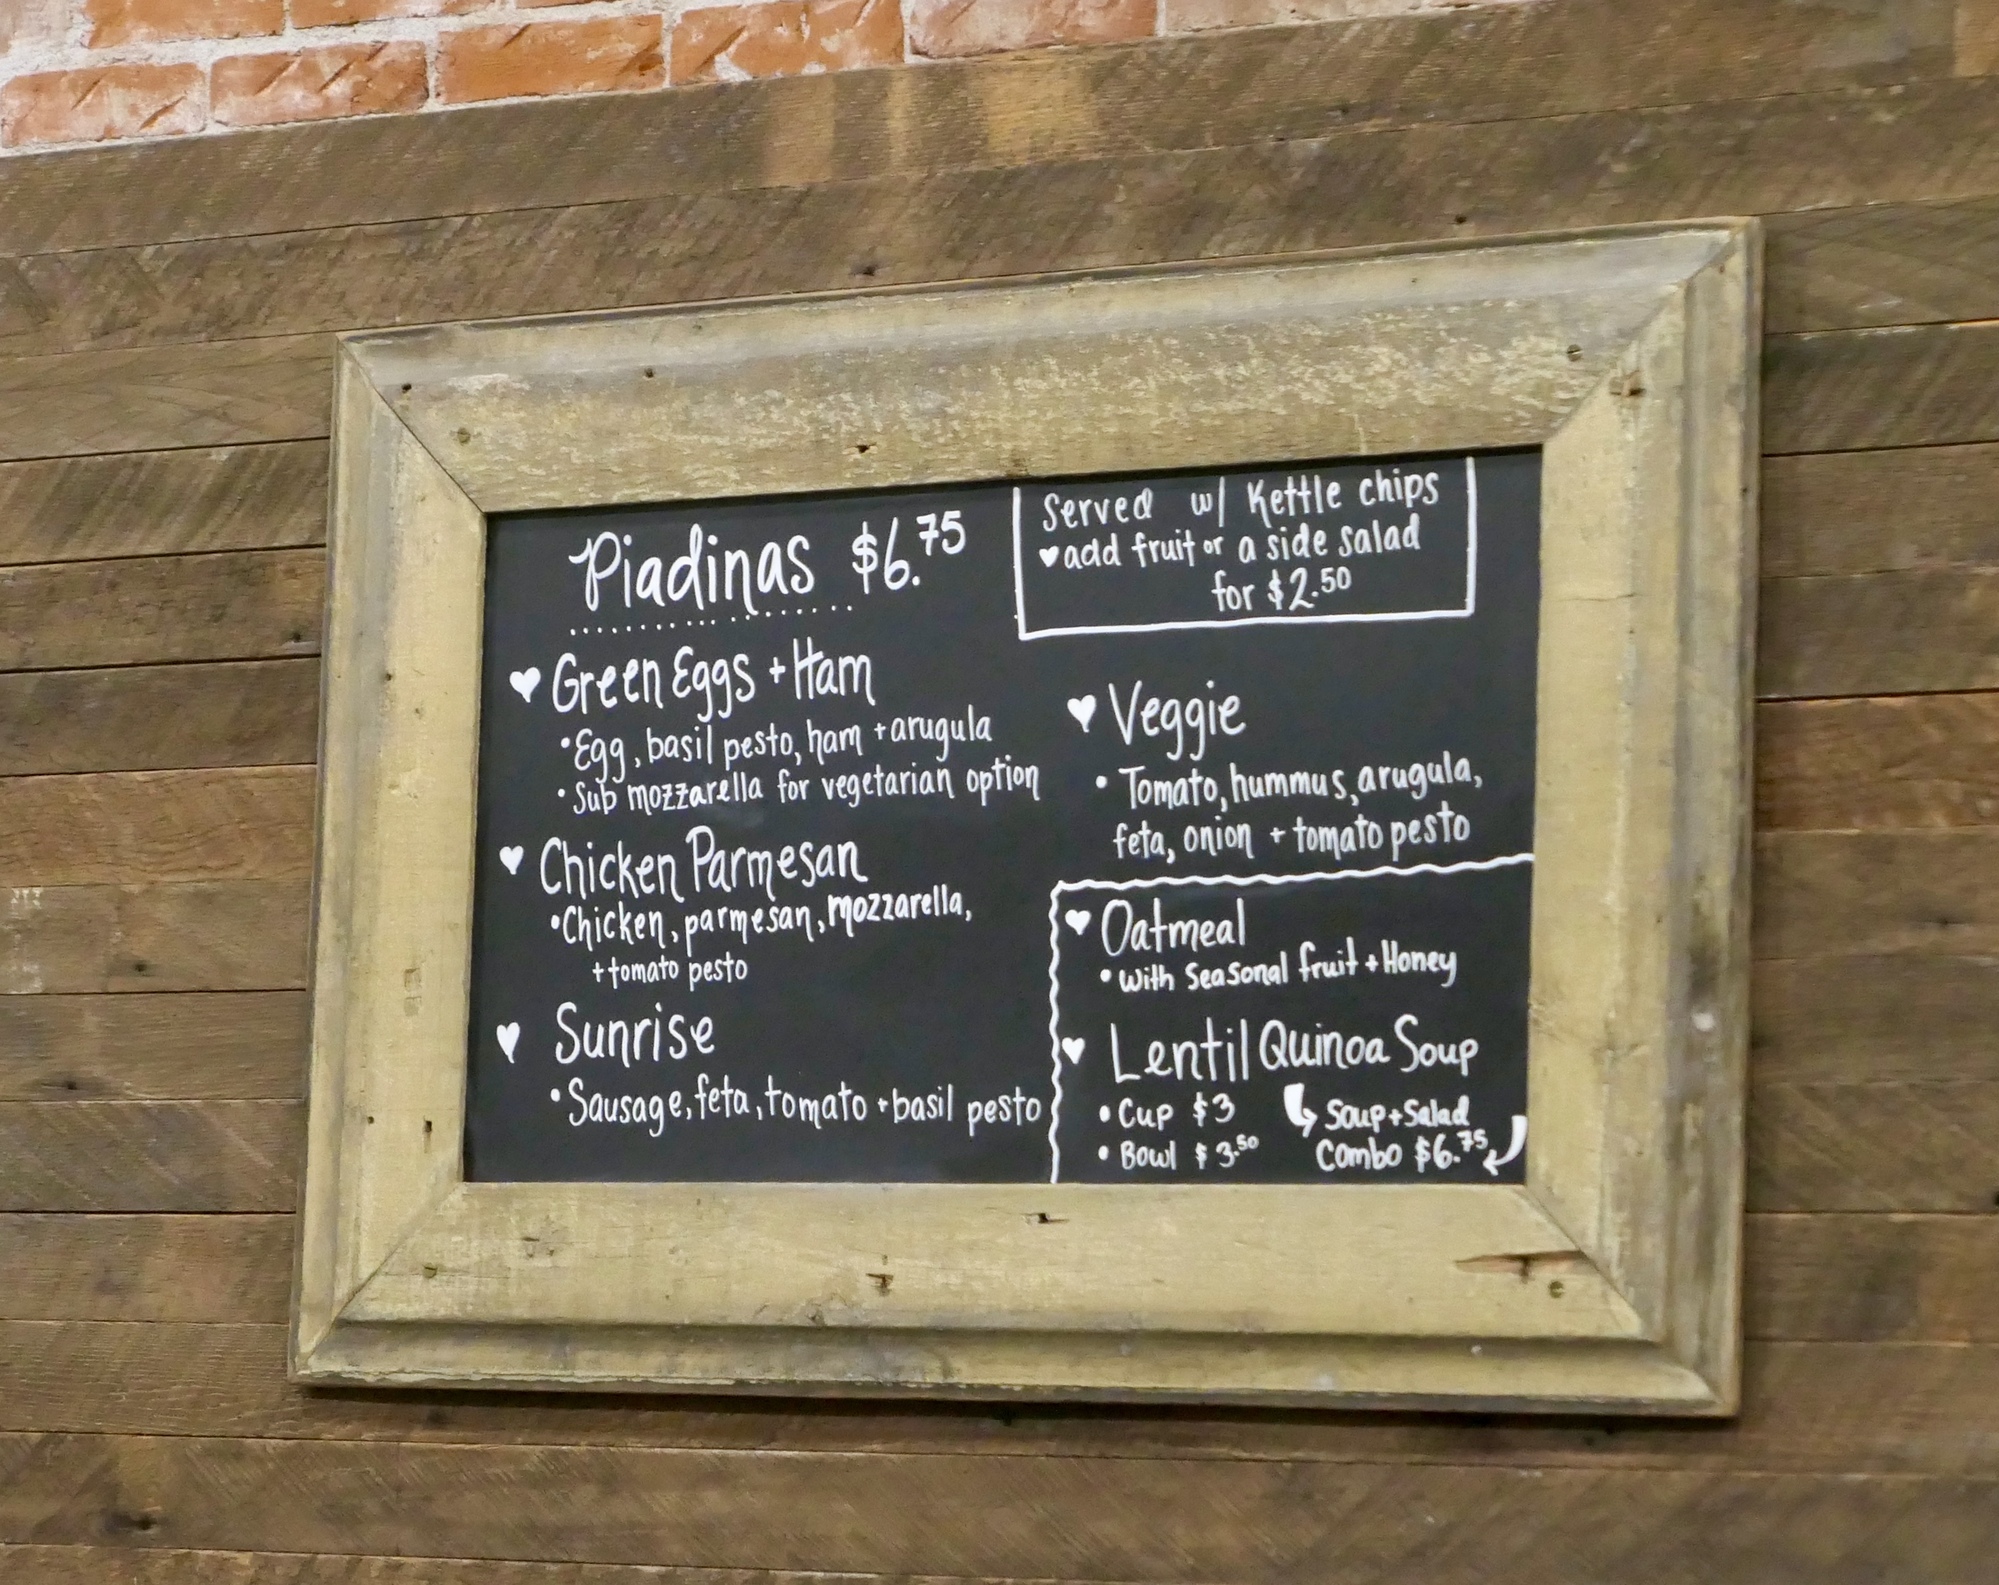 Piadinas $6.75
Served w/ Kettle chips
♥add fruit or a side salad
for $2.50
♥ Green Eggs + Ham
•Egg, basil pesto, ham + arugula
•Sub mozzarella for vegetarian option
♥ Chicken Parmesan
•Chicken, parmesan, mozzarella,
+ tomato pesto
♥ Sunrise
•Sausage, feta, tomato + basil pesto
♥ Veggie
• Tomato, hummus, arugula,
feta, onion + tomato pesto
♥ Oatmeal
• with Seasonal fruit + Honey
♥ Lentil Quinoa Soup
• Cup $3
• Bowl $3.50
Soup + Salad
Combo $6.75